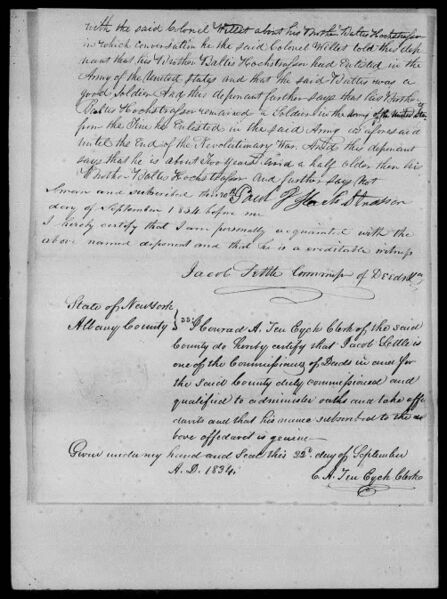 with the said Colonel Willet about his Brother Baltis Hochstrasser
in which conversation he the said Colonel Willet told this depo
nant that his Brother Baltis Hochstrasser had Enlisted in the
Army of the United States and that he said Baltis was a
good Soldier And this deponant further says that his Brother
Baltis Hochstrasser remained a Soldier in the Army of the United Sta
from the time he Enlisted in the said Army as aforesaid
until the End of the Revolutionary War. And this deponant
says that he is about two years and a half older then his
Brother Baltis Hochstrasser And further says Not
Sworn and subscribed the 20th Jacob Hochstrasser
day of September 1834 before me
I hereby certify that I am personally acquainted with the
above named deponent and that he is a creditable witness
Jacob Settle Commiss of Deeds
State of New York
Albany County } ss: I Conrad A. Ten Eyck Clerk of the said
County do hereby certify that Jacob Settle is
one of the Commissioners of Deeds in and for
the Said County duly commissioned and
qualified to administer oaths and take affi
davits and that his name subscribed to the a
bove affidavit is genuine—
Given under my hand and Seal this 22d day of September
A.D. 1834.
C. A. Ten Eyck Clerk